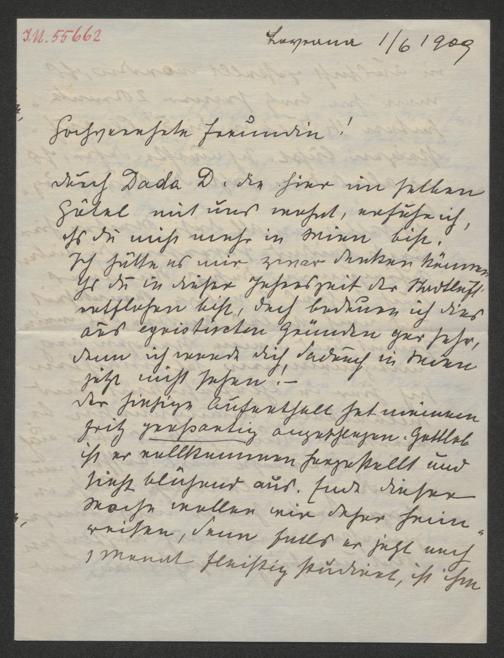 I.N. 55662
Lovrana 1/6 1909
Hochverehrte Freundin!
durch Dada D. die hier im selben
Hôtel mit uns wohnt, erfuhr ich,
dß du nicht mehr in Wien bist.
Ich hätte es mir zwar denken können
dß du in dieser Jahreszeit der Stadtluft
entflohen bist, doch bedaure ich dies
aus egoistischen Gründen gar sehr,
denn ich werde dich dadurch in Wien
jetzt nicht sehen. –
Der hiesige Aufenthalt hat meinem
Fritz großartig angeschlagen. Gottlob
ist er vollkommen hergestellt und
sieht blühend aus. Ende dieser
Woche wollen wir daher heim-
reisen, denn falls er jetzt noch
1 Monat fleißig studiert, ist ihm